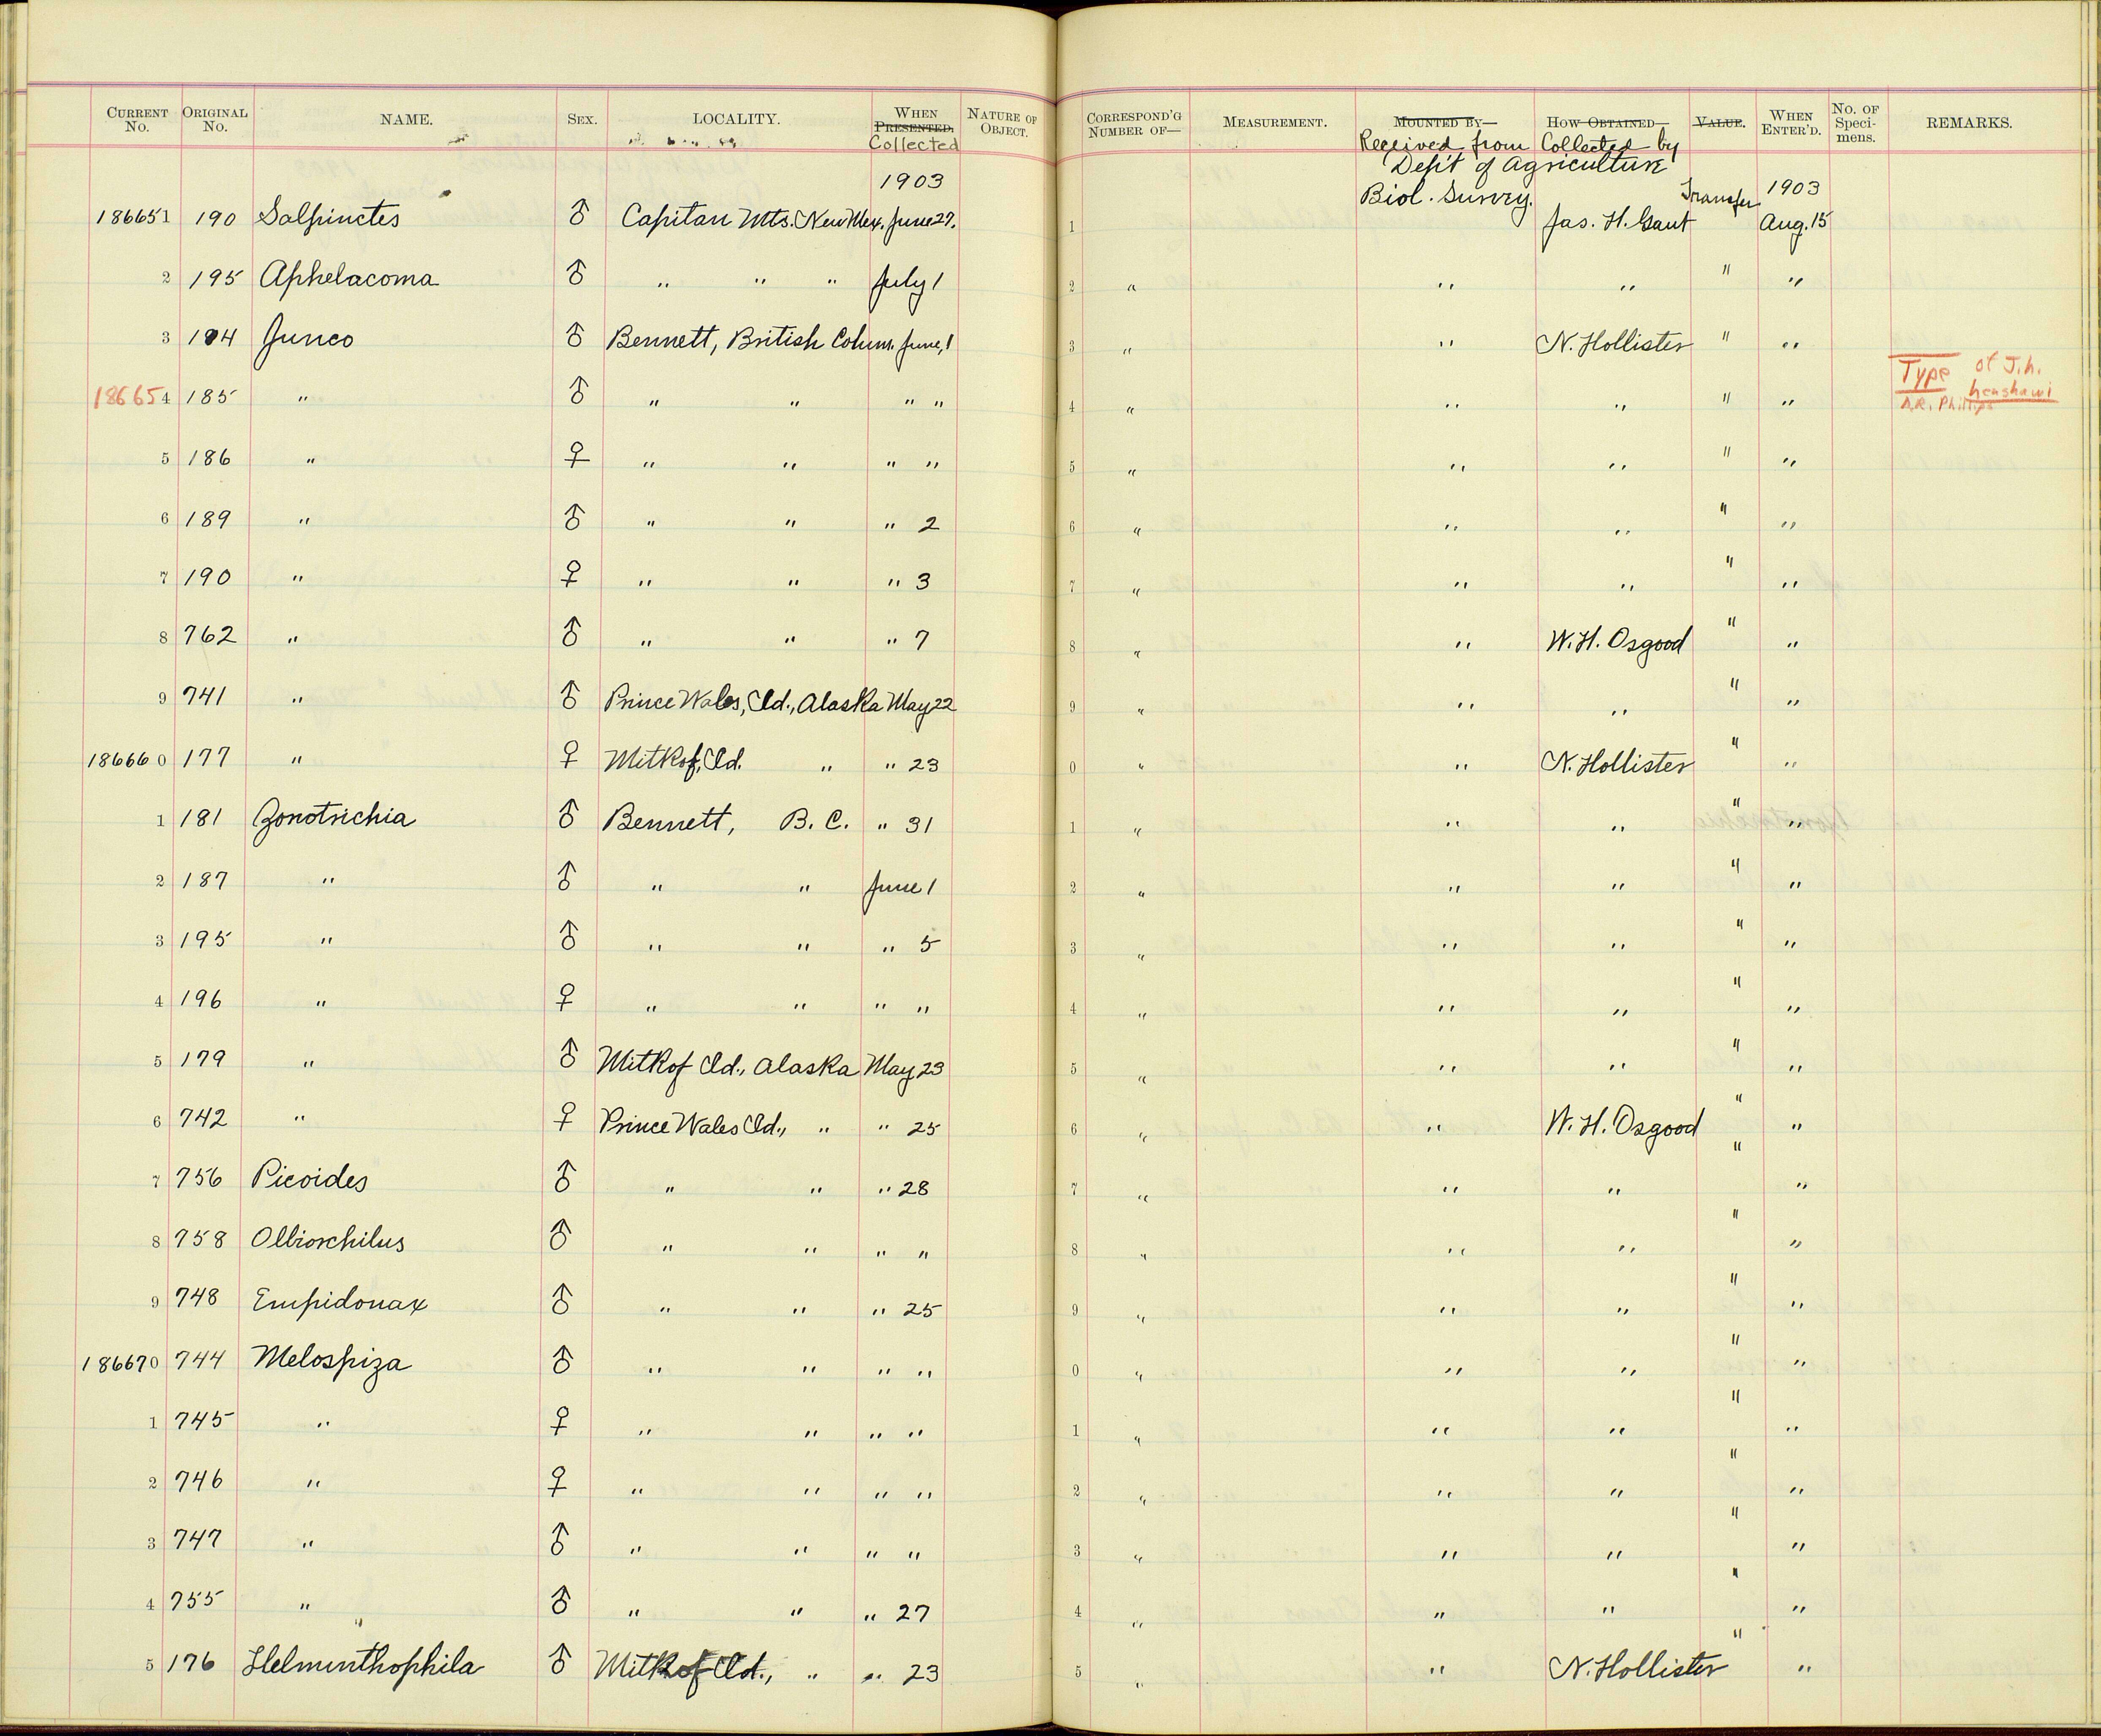 CURRENT No. ORIGINAL No. NAME. SEX. LOCALITY. WHEN PRESENTED. Collected NATURE OF OBJECT. CORRESPOND'G NUMBER OF— MEASUREMENT. MOUNTED BY— Received from HOW OBTAINED— Collected by VALUE. WHEN ENTER'D. No. OF Speci-mens. REMARKS.
Dep't of Agriculture
1903 Biol. Survey. Transfer 1903
186651 190 Salpinctes ♂ Capitan Mts. New Mex. June 27. 1 Jas. H. Gaut Aug. 15
2 195 Aphelacoma ♂ " " " July 1 2 " " " " "
3 184 Junco ♂ Bennett, British Colum. June, 1 3 " " N. Hollister " "
186654 185 " ♂ " " " " 4 " " " " " Type of J.h. henshawi
A.R. Phillips
5 186 " ♀ " " " " 5 " " " " "
6 189 " ♂ " " " 2 6 " " " " "
7 190 " ♀ " " " 3 7 " " " " "
8 762 " ♂ " " " 7 8 " " W. H. Osgood " "
9 741 " ♂ Prince Wales, Ild., Alaska May 22 9 " " " " "
186660 177 " ♀ Mitkof, Ild. " " 23 0 " " N. Hollister " "
1 181 Zonotrichia ♂ Bennett, B. C. " 31 1 " " " " "
2 187 " ♂ " " June 1 2 " " " " "
3 195 " ♂ " " " 5 3 " " " " "
4 196 " ♀ " " " " 4 " " " " "
5 179 " ♂ Mitkof Ild., Alaska May 23 5 " " " " "
6 742 " ♀ Prince Wales Ild., " " 25 6 " " W. H. Osgood " "
7 756 Picoides ♂ " " " 28 7 " " " " "
8 758 Olbiorchilus ♂ " " " " 8 " " " " "
9 748 Empidonax ♂ " " " 25 9 " " " " "
186670 744 Melospiza ♂ " " " " 0 " " " " "
1 745 " ♀ " " " " 1 " " " " "
2 746 " ♀ " " " " 2 " " " " "
3 747 " ♂ " " " " 3 " " " " "
4 755 " ♂ " " " 27 4 " " " " "
5 176 Helminthophila ♂ Mitkof Ild., " " 23 5 " " N. Hollister " "